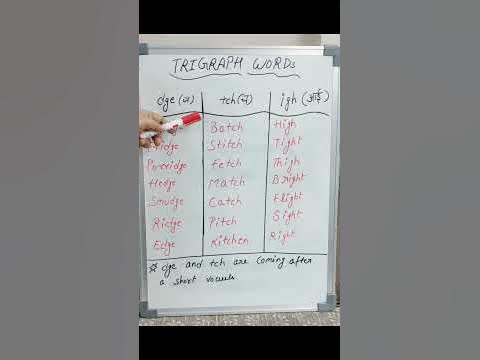 TRIGRAPH WORDS
dge (ज) tch (च) igh (आई)
Batch High
Fridge Stitch Tight
Porridge Fetch Thigh
Hedge Match Bright
Smudge Catch Flight
Ridge Pitch Sight
Edge Kitchen Right
dge and tch are coming after
a short vowels